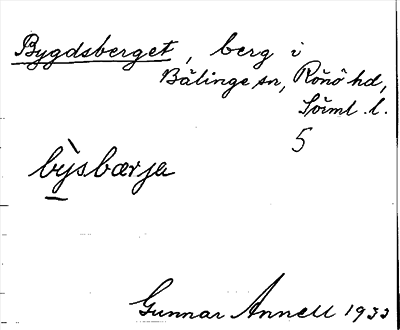 Bygdsberget, berg i
Bälinge sn, Rönö hd,
Söıml. l.
5
bỳsbærja
Gunnar Annell 1933